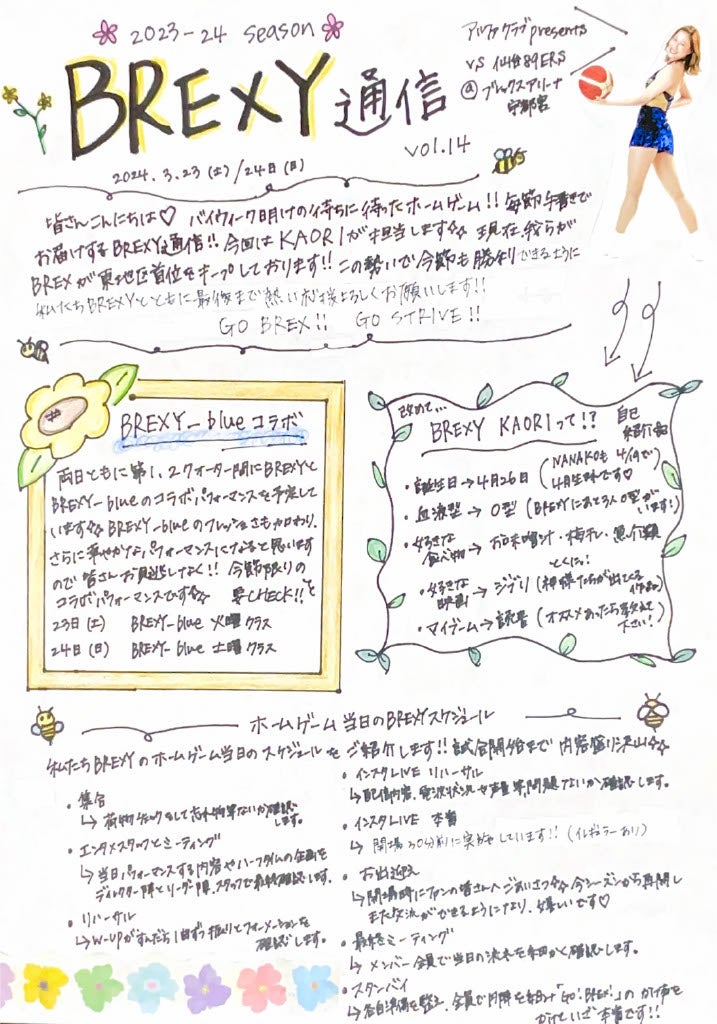 2023-24 season
BREXY通信
vol.14
アルファクラブpresents
vs 仙台89ERS
@ブレックスアリーナ
宇都宮
2024.3.23(土)/24日(日)
皆さんこんにちは♡ バイウィーク明けの待ちに待ったホームゲーム!! 毎節手書きで
お届けするBREXY通信!! 今回はKAORIが担当します☆ 現在、我らが
BREXが東地区首位をキープしております!! この勢いで今節も勝利できるように
私たちBREXYとともに最後まで熱い応援よろしくお願いします!!
GO BREX!! GO STRIVE!!
BREXY-blueコラボ
両日ともに第1、2クォーター間にBREXYと
BREXY-blueのコラボパフォーマンスを予定して
います☆ BREXY-blueのフレッシュさも加わり、
さらに華やかなパフォーマンスになると思います
ので皆さんお見逃しなく!! 今節限りの
コラボパフォーマンスです☆ 要CHECK!!
23日(土) BREXY-blue 火曜クラス
24日(日) BREXY-blue 土曜クラス
改めて…
BREXY KAORIって!?
自己
紹介
・誕生日→4月26日(NANAKOも4/19で
4月生まれです♡)
・血液型→O型(BREXYにあと3人O型が
います!)
・好きな
食べ物→お味噌汁・梅干し・魚介類
とくにっ!
・好きな
映画→ジブリ(神様たちが出てくる
作品)
・マイブーム→読書(オススメあったら教えて
下さい!)
ホームゲーム当日のBREXYスケジュール
私たちBREXYのホームゲーム当日のスケジュールをご紹介します!! 試合開始まで内容盛り沢山☆
・集合
↳荷物チェックをして忘れ物等ないか確認
します。
・エンタメスタッフとミーティング
↳当日パフォーマンスする内容やハーフタイムの企画を
ディレクター陣とリーダー陣、スタッフで最終確認します。
・リハーサル
↳W-upがすんだら1曲ずつ振りとフォーメーションを
確認します。
・インスタLIVE リハーサル
↳配信内容、電波状況や声量等、問題ないか確認します。
・インスタLIVE 本番
↳開場30分前に実施しています!!(イレギュラーあり)
・お出迎え
↳開場時にファンの皆さんへごあいさつ☆ 今シーズンから再開し
また交流ができるようになり、嬉しいです♡
・最終ミーティング
↳メンバー全員で当日の流れを細かく確認します。
・スタンバイ
↳各自準備を整え、全員で円陣を組み「Go! Brex!」のかけ声を
かけていざ本番です!!